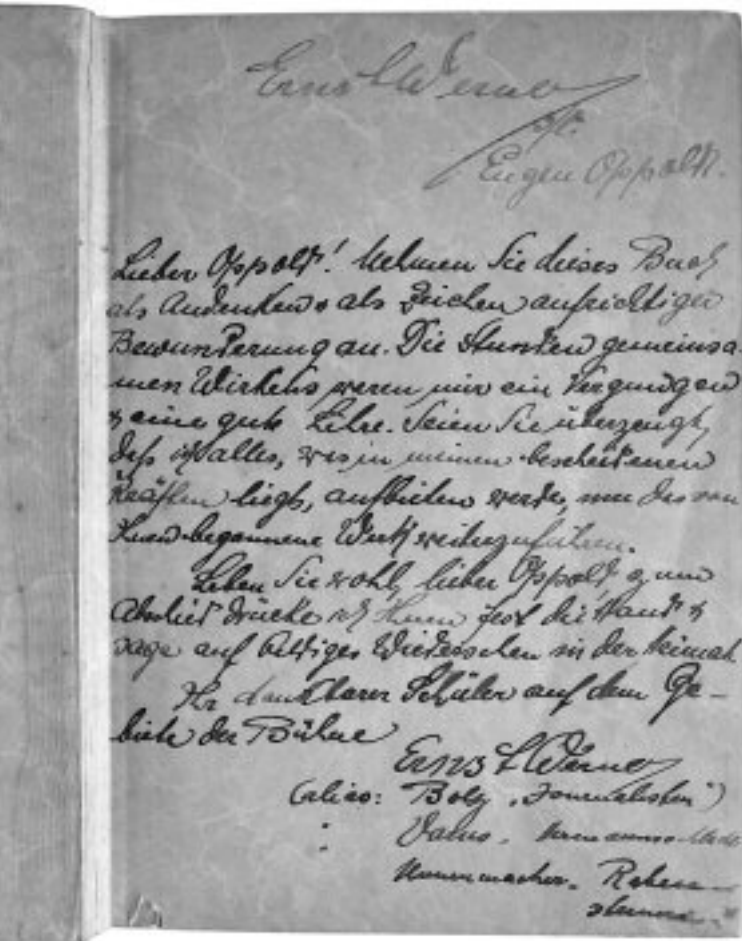 Ernst Werno
s/l.
Eugen Oppolt.
Lieber Oppolt! Nehmen Sie dieses Buch
als Andenken & als Zeichen aufrichtiger
Bewunderung an. Die Stunden gemeinsa-
men Wirkens waren mir ein Vergnügen
& eine gute Lehre. Seien Sie überzeugt,
daß ich alles, was in meinen bescheidenen
Kräften liegt, aufbieten werde, um das von
Ihnen begonnene Werk weiterzuführen.
Leben Sie wohl, lieber Oppolt, zum
Abschied drücke ich Ihnen fest die Hand &
sage auf baldiges Wiedersehen in der Heimat
Ihr dankbarer Schüler auf dem Ge-
biete der Bühne
Ernst Werno
(alias: Bolz "Journalisten")